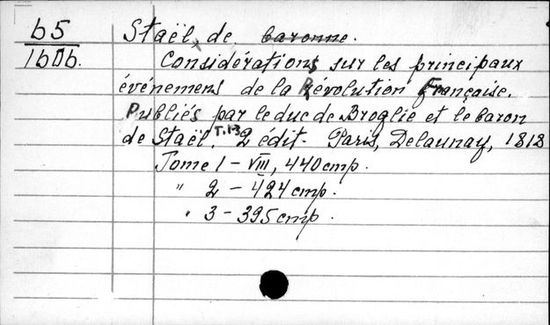 65 Staël, de baronne.
1606. Considérations sur les principaux
événemens de la Révolution Française.
Publiés par le duc de Broglie et le baron
de Staël. T.1-3 2 édit. Paris, Delaunay, 1818
Tome 1 - VIII, 440 cmp.
" 2 - 424 cmp.
" 3 - 395 cmp.